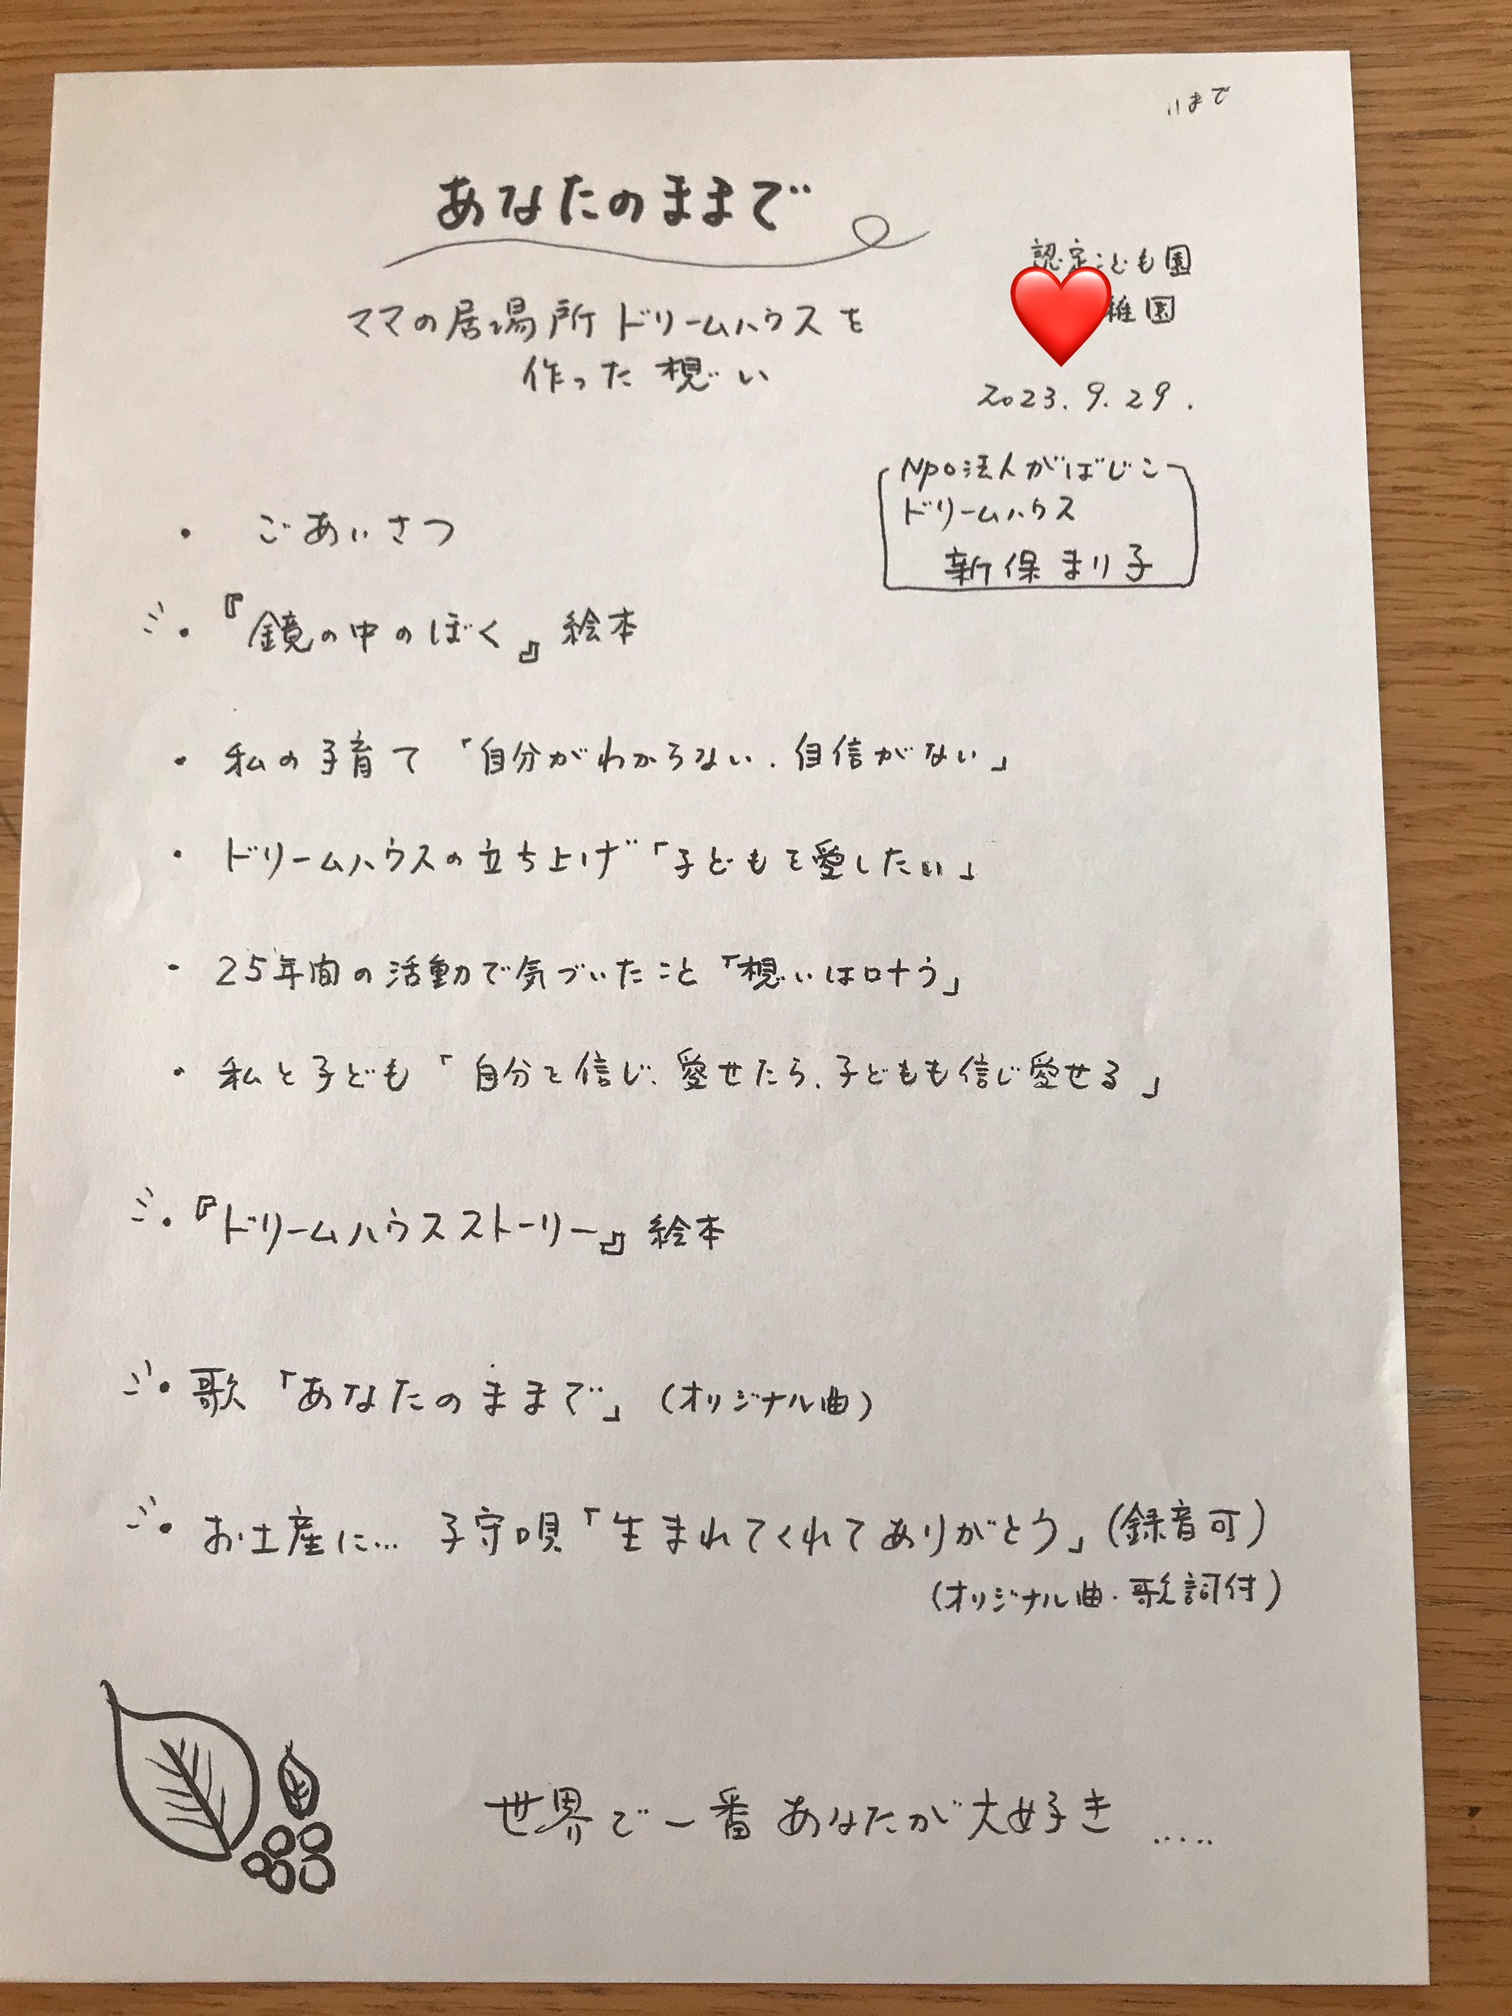 11まで
あなたのままで
ママの居場所 ドリームハウスを
作った想い
認定こども園
稚園
2023.9.29.
NPO法人がばじこ
ドリームハウス
新保まり子
・ ごあいさつ
・『鏡の中のぼく』絵本
・ 私の子育て「自分がわからない.自信がない」
・ ドリームハウスの立ち上げ「子どもを愛したい」
・ 25年間の活動で気づいたこと「想いは叶う」
・ 私と子ども「自分を信じ、愛せたら、子どもも信じ愛せる」
・『ドリームハウスストーリー』絵本
・歌「あなたのままで」(オリジナル曲)
・お土産に… 子守唄「生まれてくれてありがとう」(録音可)
(オリジナル曲・歌詞付)
世界で一番 あなたが大好き .....